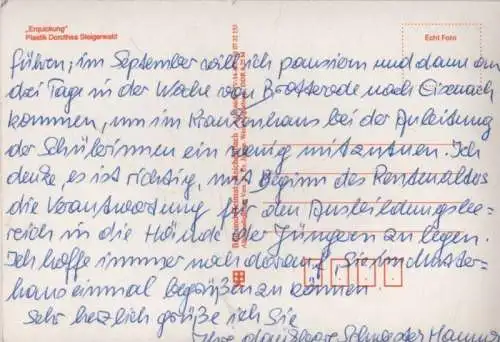 „Erquickung"
Plastik Dorothea Steigerwald
Echt Foto
führen; im September will ich pausieren und dann an
drei Tage in der Woche von Brotterode nach Eisenach
kommen, um im Krankenhaus bei der Anleitung
der Schülerinnen ein wenig mitzutun. Ich
denke, es ist richtig, mit Beginn des Rentenalters
die Verantwortung für den Ausbildungsbe-
reich in die Hände der Jüngeren zu legen.
Ich hoffe immer noch darauf, Sie im Mutter-
haus einmal begrüßen zu können
Sehr herzlich grüße ich Sie
Ihre dankbare Schwester Hanna